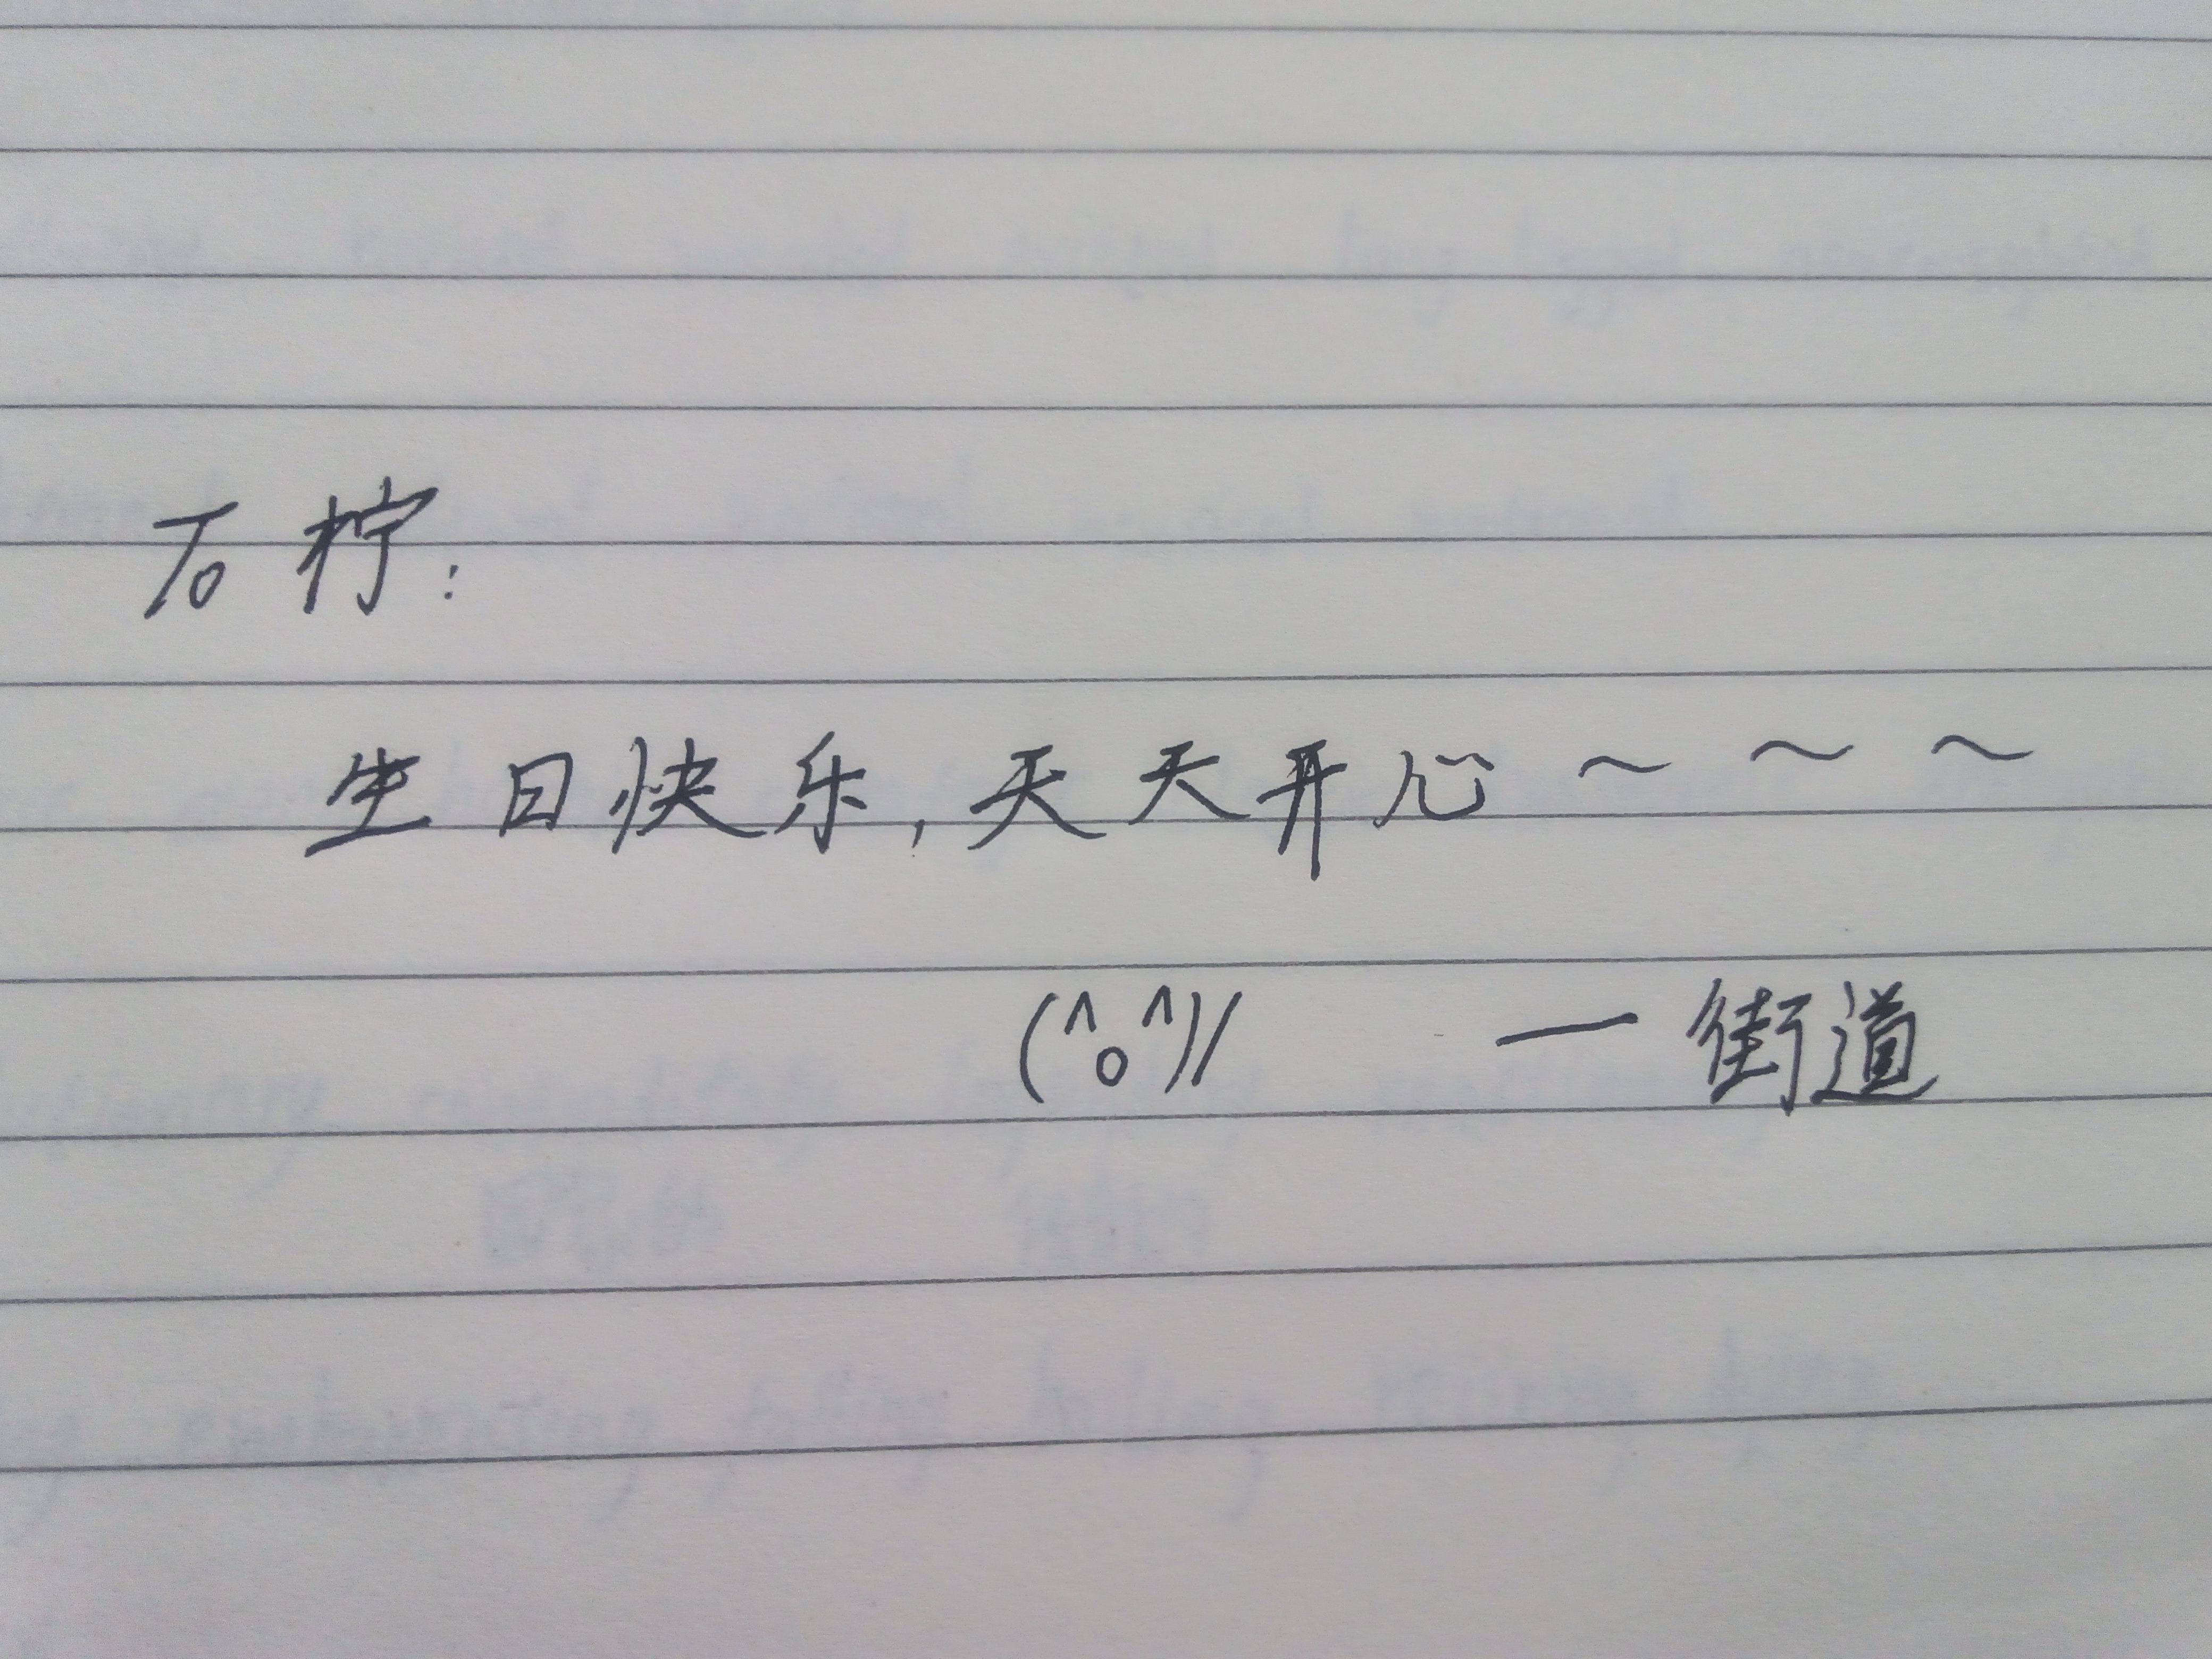 To 柠:
生日快乐,天天开心~~~
(^o^)/ —街道